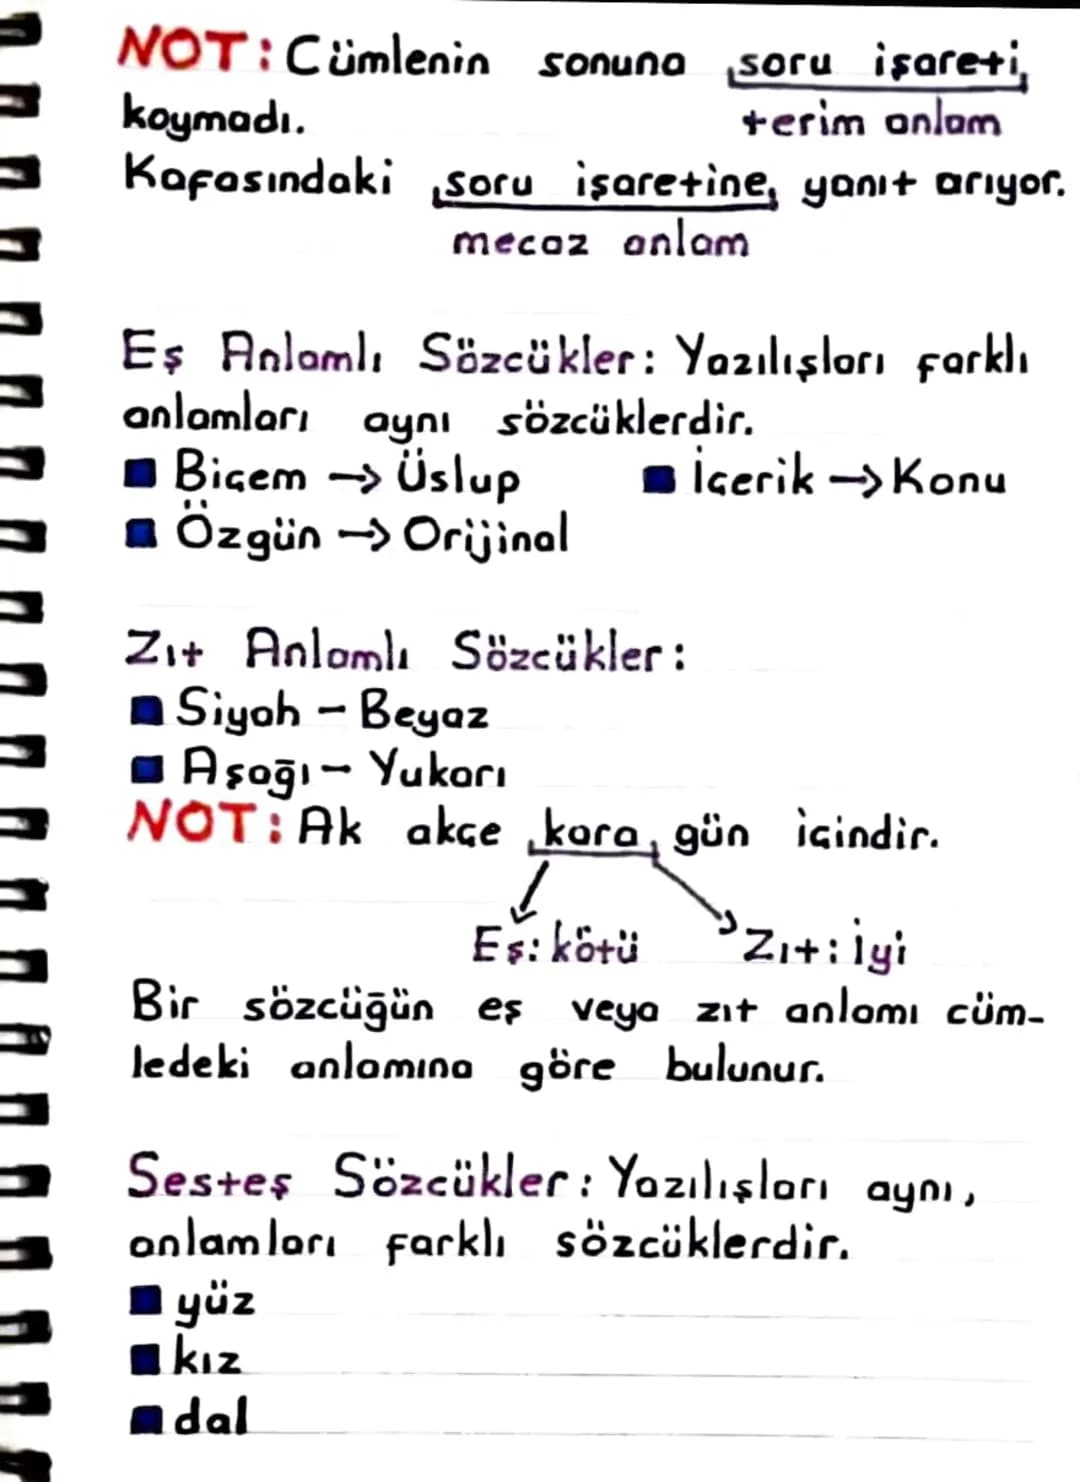 NOT: Cümlenin sonuna soru işareti
koymadı. terim anlam
Kafasındaki soru işaretine yanıt arıyor.
mecaz anlam
Eş Anlamlı Sözcükler: Yazılışları farklı
anlamları aynı sözcüklerdir.
Biçem → Üslup İçerik → Konu
Özgün → Orijinal
Zıt Anlamlı Sözcükler:
Siyah - Beyaz
Aşağı - Yukarı
NOT: Ak akçe kara gün içindir.
Eş: kötü Zıt: İyi
Bir sözcüğün eş veya zıt anlamı cüm-
ledeki anlamına göre bulunur.
Sesteş Sözcükler: Yazılışları aynı,
anlamları farklı sözcüklerdir.
yüz
kız
dal